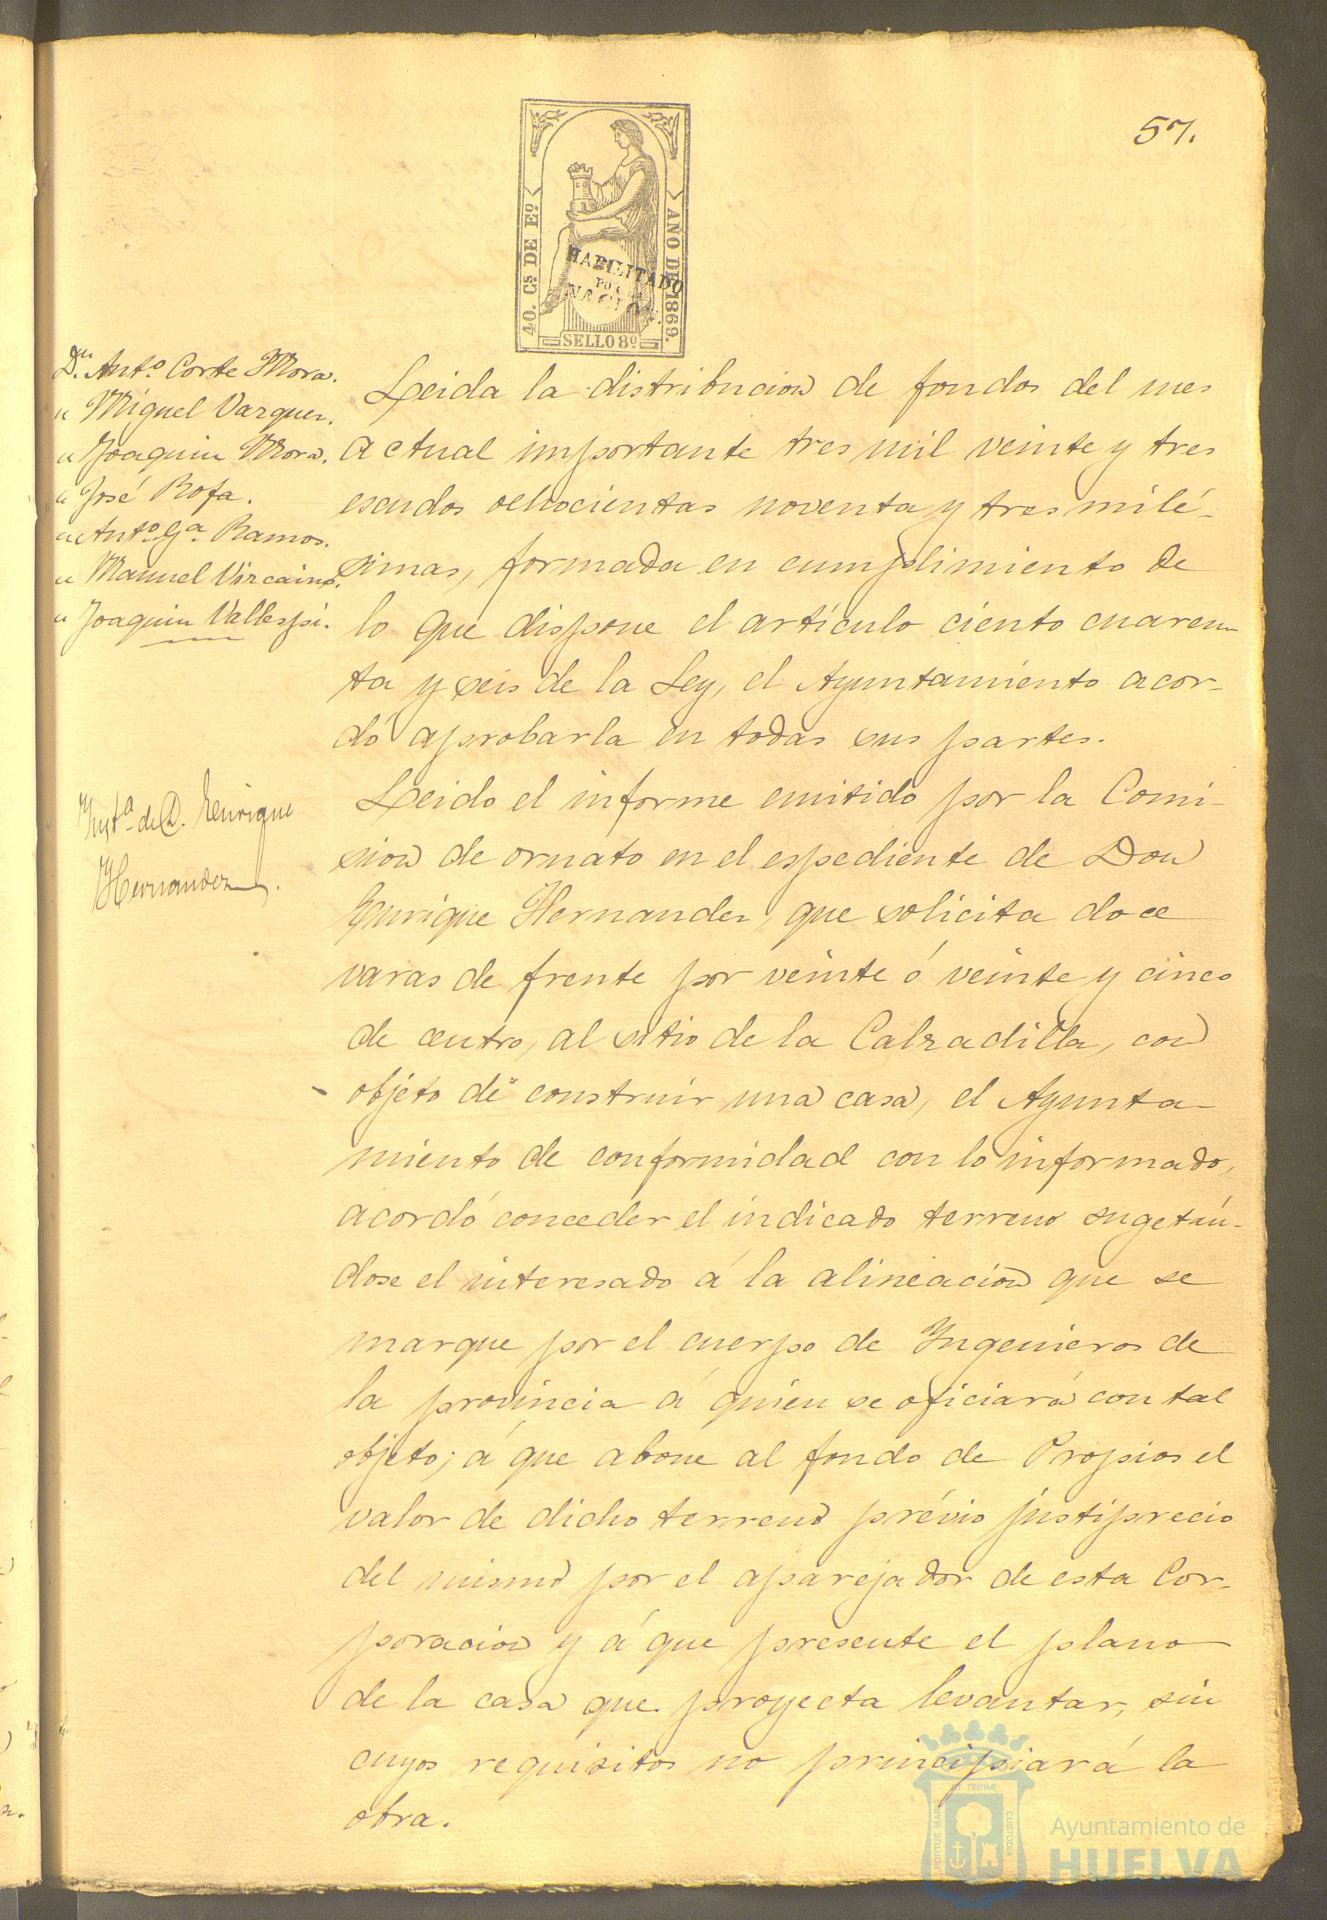 57.
40. Cs DE Eº
AÑO DE 1869.
HABILITADO
POR LA
NACION.
SELLO 8º
Dn. Antº Corte Mora.
" Miguel Vazquez.
" Joaquin Mora.
" José Rofa.
" Antº Gª Ramos.
" Manuel Vizcaino.
" Joaquin Vallespi.
Leida la distribucion de fondos del mes
actual importante tres mil veinte y tres
escudos ochocientas noventa y tres milé-
simas, formada en cumplimiento de
lo que dispone el artículo ciento cuaren-
ta y seis de la Ley, el Ayuntamiento acor-
dó aprobarla en todas sus partes.
Instª de D. Enrique
Hernandez.
Leido el informe emitido por la Comi-
sion de ornato en el espediente de Don
Enrique Hernandez, que solicita doce
varas de frente por veinte ó veinte y cinco
de centro, al sitio de la Calzadilla, con
objeto de construir una casa, el Ayunta-
miento de conformidad con lo informado,
acordó conceder el indicado terreno sugetán-
dose el interesado á la alineacion que se
marque por el cuerpo de Ingenieros de
la provincia á quien se oficiará con tal
objeto; á que abone al fondo de Propios el
valor de dicho terreno prévio justiprecio
del mismo por el aparejador de esta Cor-
poracion y á que presente el plano
de la casa que proyecta levantar, sin
cuyos requisitos no principiará la
obra.
PORTUS MARIS ET TERRÆ CUSTODIA
Ayuntamiento de
HUELVA